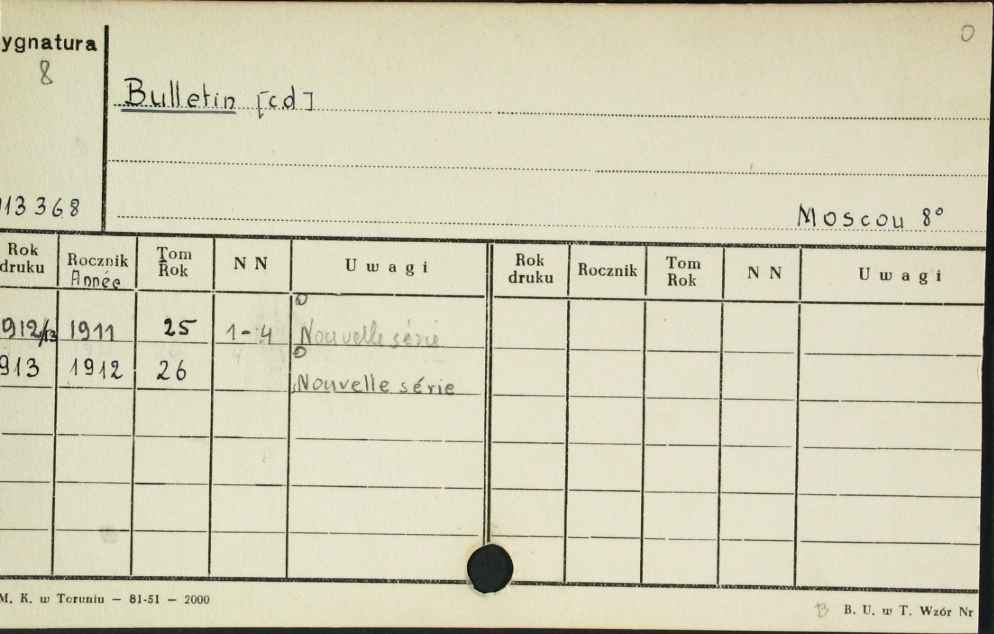 ygnatura
8
0
Bulletin [cd]
13368
Moscou 8°
Rok druku Rocznik Année Tom Rok N N Uwagi Rok druku Rocznik Tom Rok N N Uwagi
912/13 1911 25 1-4 Nouvelle série
913 1912 26 Nouvelle série
M. K. w Toruniu — 81-51 — 2000
B. U. w T. Wzór Nr